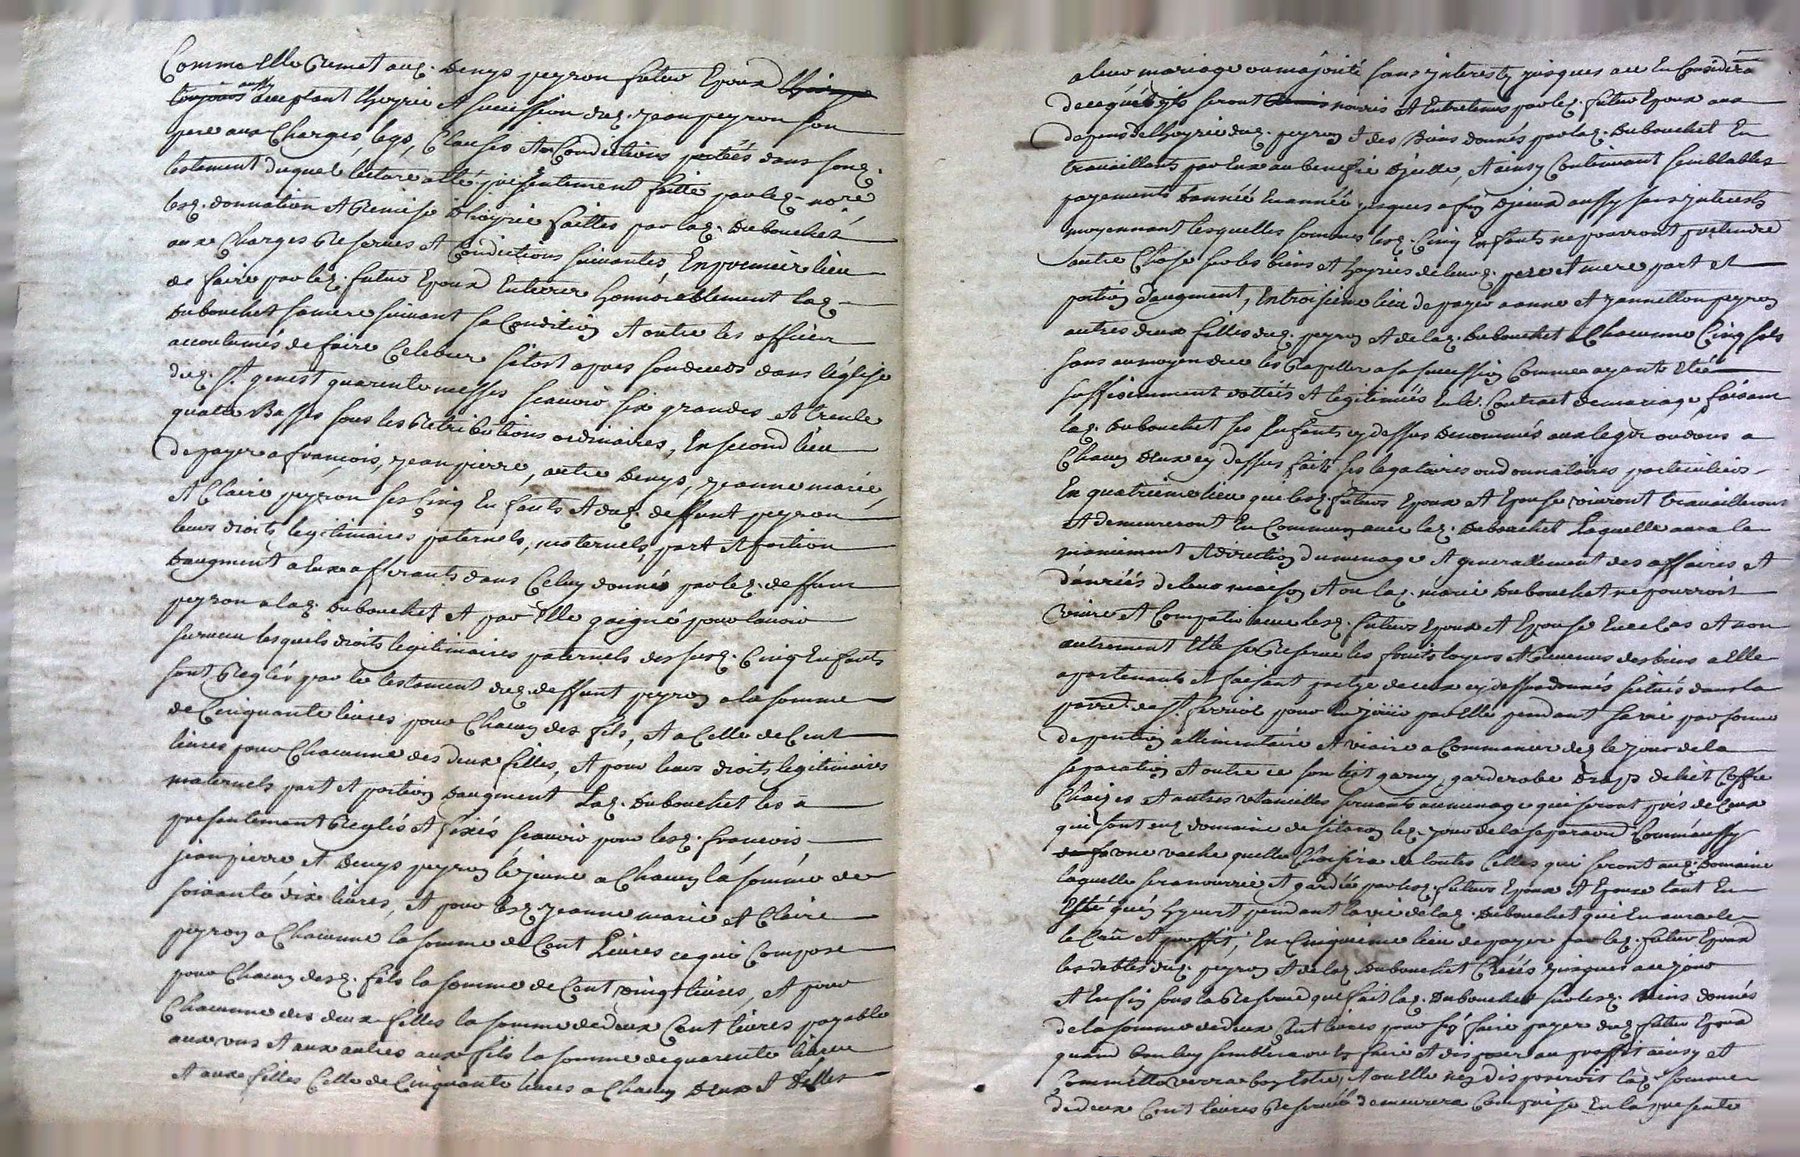 Comme Elle Remet aud. Denys peyron futur Epoux
toujours aussy acceptant Lhoyrie et succession dud. jean peyron son
pere aux Charges legs, Clauses et Conditions portées dans sond.
testament duquel lecture a été présentement faitte par led. nore
lesd. donnation et Remise d'hoyrie faittes par lad. Dubouchet
aux Charges Reserves et Conditions suivantes, En premier lieu
de faire par led. futur Epoux Enterrer honnorablement lad.
Dubouchet sa mere suivant sa Condition et outre les offices
accoutumés de faire Celebrer sitost apres son deceds dans l'églize
dud. St. genest quarente messes scavoir six grandes et trente
quatre Basses sous les Retributions ordinaires, En second lieu
de payer a francois, jean pierre, autre Denys, jeanne marie,
et Claire peyron ses Cinq Enfants et dud. deffunt peyron
leurs droits legitimaires paternels, maternels, part et portion
d'augment a Eux afferants dans Celuy donné par led. deffunt
peyron a lad. Dubouchet et par Elle gaigné pour lavoir
survecu lesquels droits legitimaires paternels desd. Cinq Enfants
sont Reglés par le testament dud. deffunt peyron a la somme
de Cinquante livres pour Chacun des fils, et a Celle de Cent
livres pour Chacunne des deux filles, et pour leurs droits legitimaires
maternels part et portion d'augment Lad. Dubouchet les a
presentement Reglés et fixés scavoir pour lesd. francois
jean pierre et Denys peyron le jeune a Chacun la somme de
soixante dix livres, et pour lesd. jeanne marie et Claire
peyron a Chacunne la somme de Cent Livres ce qui Compose
pour Chacun desd. fils la somme de Cent vingt livres, et pour
Chacunne des deux filles la somme de deux Cent livres payable
aux uns et aux autres aux fils la somme de quarente livres
et aux filles Celle de Cinquante livres a Chacun d'Eux et d'Elles
a leur mariage ou majorité sans interests jusques a ce En Considéraon
de ce qu'ils seront nourris et Entretenus par led. futur Epoux aux
depens de lhoyrie dud. peyron et des Biens donnés par lad. Dubouchet En
travaillants par Eux au benefice d'jcelle, et ainsy Continuant semblables
payements d'année En année jusques a fin d'jceux aussy sans interests
moyennant lesquelles sommes lesd. Cinq Enfants ne pourront pretendre
autre Chose sur les biens et hoyries de leursd. pere et mere part et
portion d'augment, En troisieme lieu de payer a anne et jeannetton peyron
autres deux filles dud. peyron et de lad. Dubouchet Chacunne Cinq sols
sans au moyen de ce les Rapeller a sa succession Comme ayants été
suffisemment dottées et legitimées En le. Contract de mariage faisant
lad. Dubouchet ses Enfants cy dessus denommés aux legs ou dons a
Chacun d'eux cy dessus faits ses legataires ou donnataires particuliers
En quatrieme lieu que lesd. futurs Epoux et Epouse vivront travailleront
et demeureront En Commun avec lad. Dubouchet Laquelle aura le
maniement et direction du menage et generallement des affaires et
danrées de leur maison et ou lad. marie Dubouchet ne pourroit
vivre et Compatir avec lesd. futurs Epoux et Epouse En ce Cas et non
autrement Elle se Reserve les fruits loyers et Revenus des biens a Elle
apartenants et faisant partye de ceux cy dessus donnés scitués dans la
parre. de St. ferriol pour En jouir par Elle pendant sa vie par forme
de pention allimentaire et viaire a Commancer dez le jour de la
separation et outre ce son lict garny, garderobe Draps de lict Coffre
Chaizes et autres utancilles servants au menage qui seront pris de Ceux
qui sont aud. domaine de led. jour de la separaon Comme aussy
une vache quelle Choisira de toutes Celles qui seront aud. Domaine
laquelle sera nourrie et gardée par lesd. futurs Epoux et Epouse tant En
Esté qu'En hyvert pendant la vie de lad. Dubouchet qui En aura le
le Cru et proffit, En Cinquieme lieu de payer par led. futur Epoux
les debtes dud. peyron et de lad. Dubouchet Créés jusques a ce jour
et Enfin sous la Reserve que fait lad. Dubouchet sur lesd. Biens donnés
de la somme de deux Cent livres pour s'En faire payer dud. futur Epoux
quand bon luy semblera ou En faire et disposer au proffit ainsy et
Comme Elle verra bon Estre, et ou Elle n'En disposeroit lad. somme
de deux Cent livres Reservée demeurera Comprise En la presente